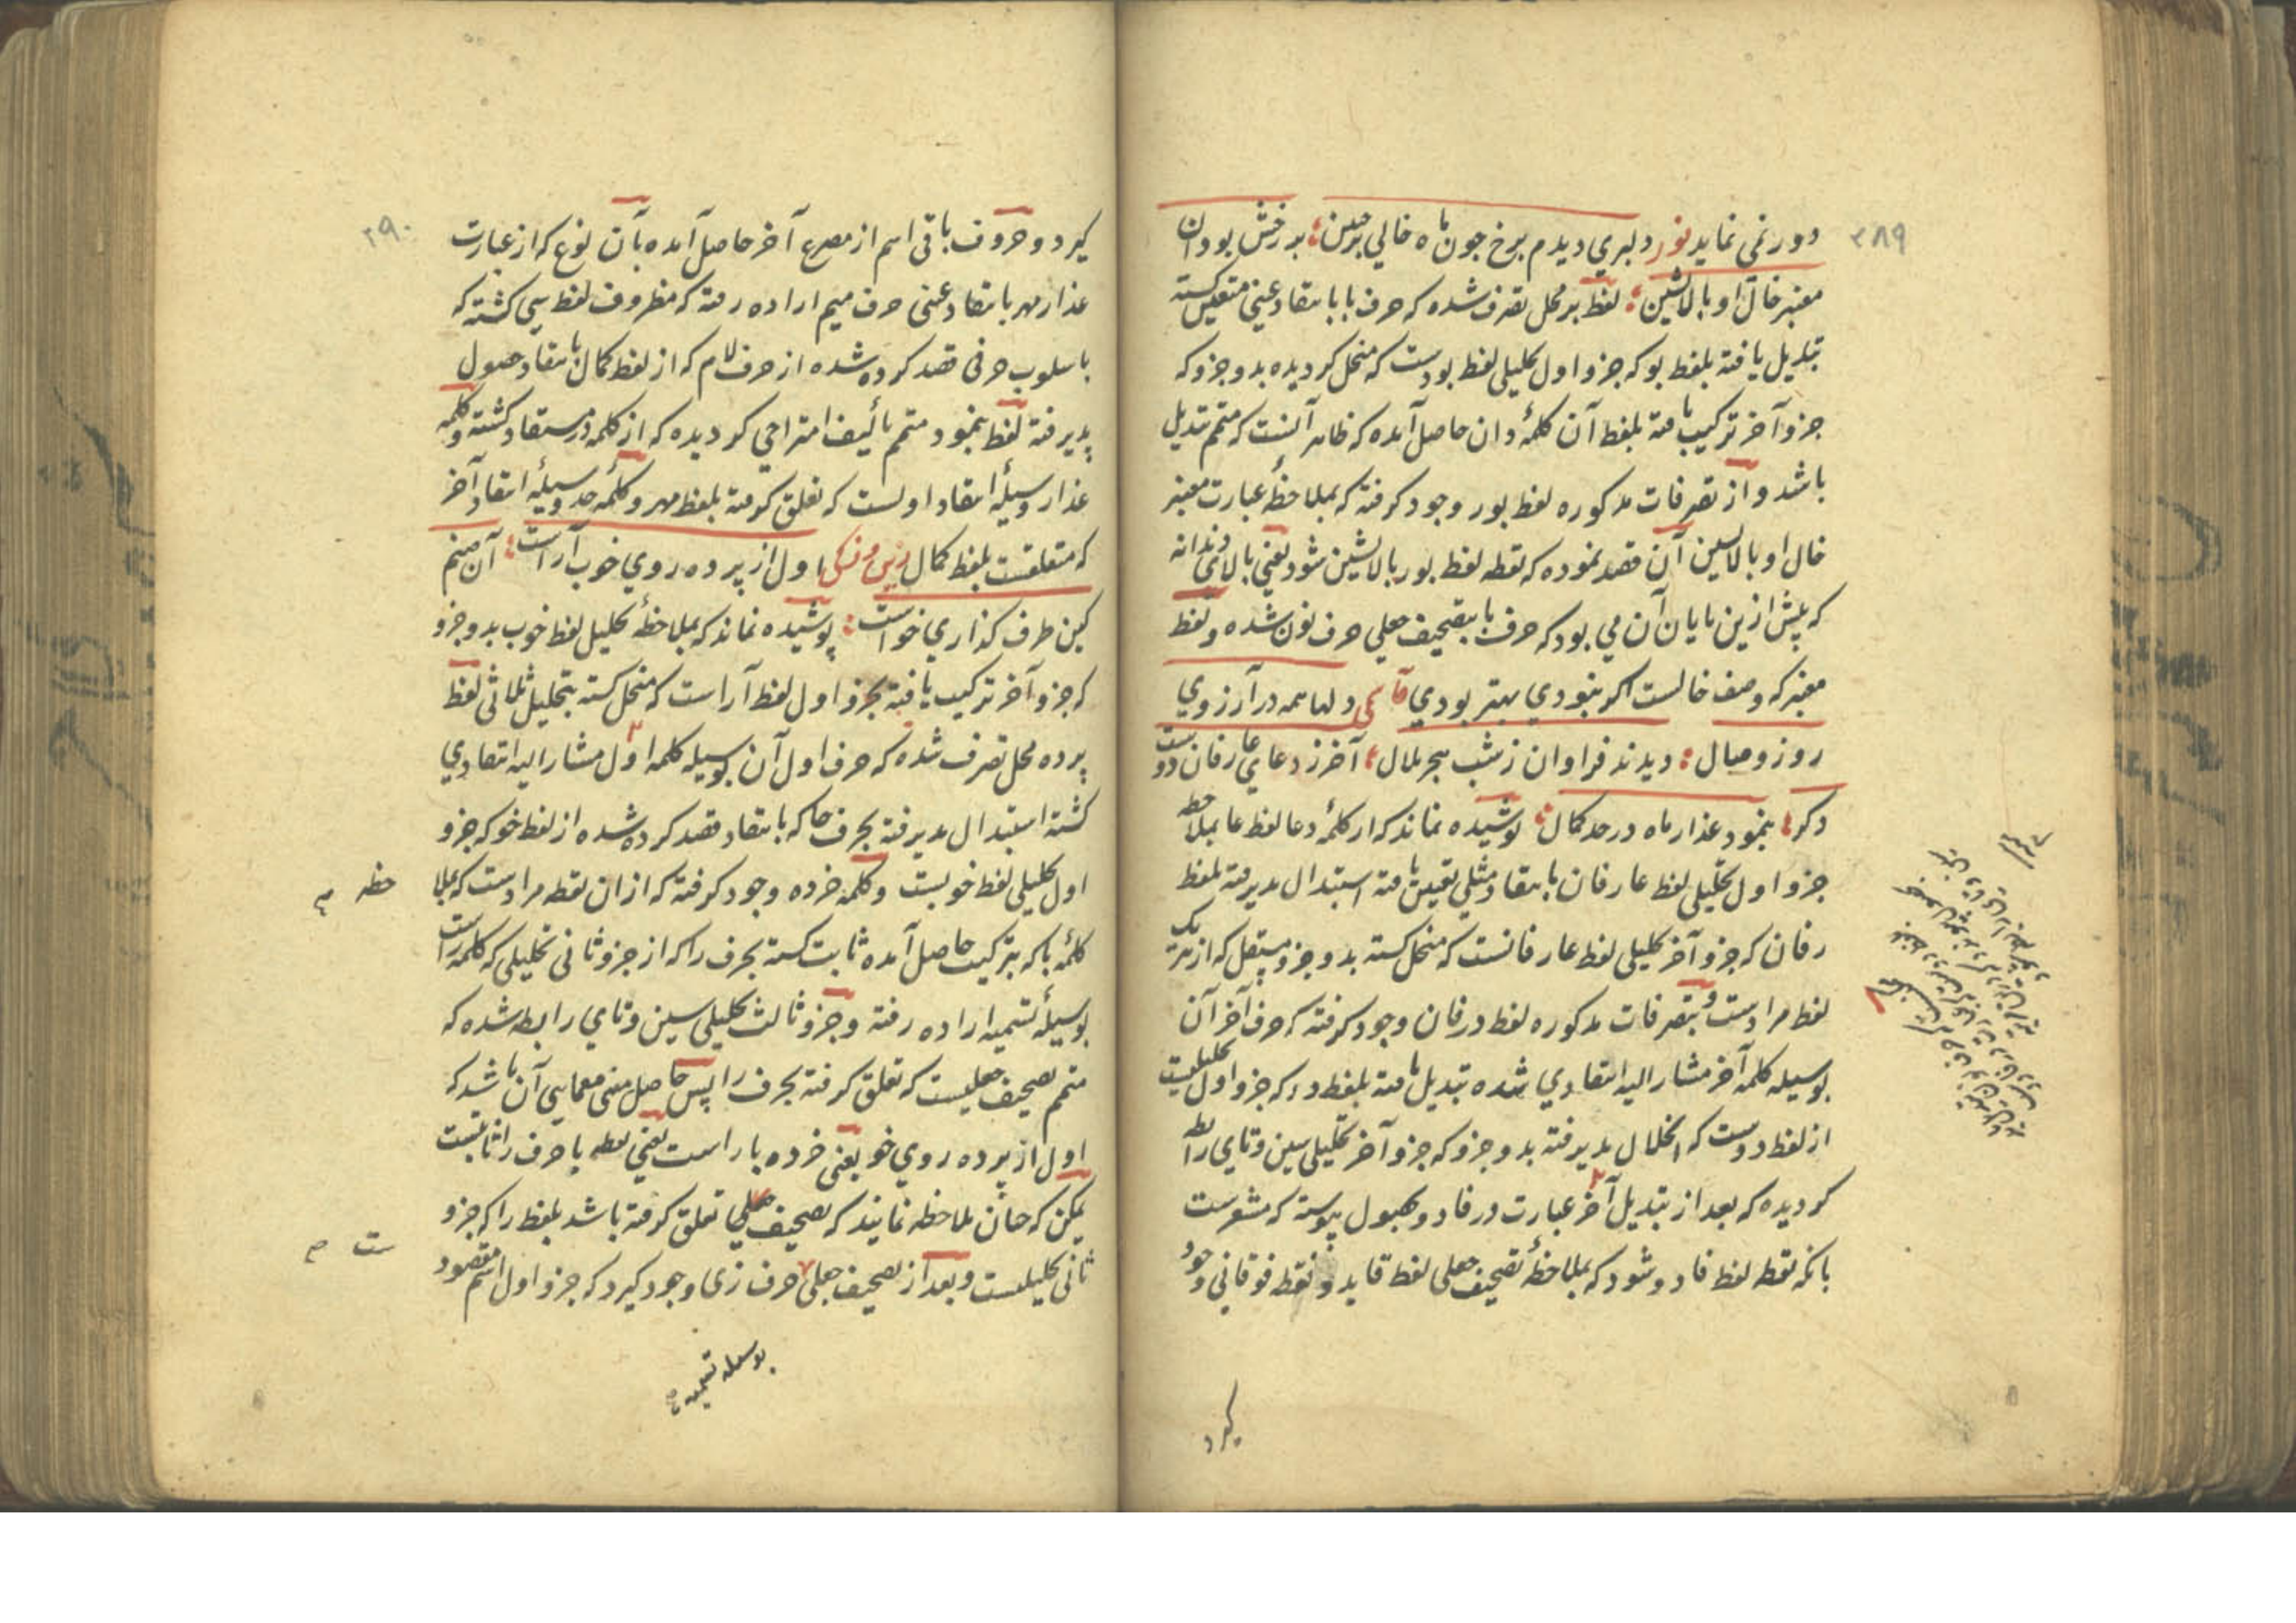 ۳۸۹
دور نمی نماید نور دلبری دیدم برخ چون ماه خالی بر جبین بر رخش بود آن
معنبر خال او بالانشین لفظ بر محل تصرف شده که حرف با بانتقاد عینی متعین کسته
تبدیل یافته بلفظ بو که جزو اول تحلیلی لفظ بودست که منحل کردیده بدو جزو که
جزو آخر ترکیب یافته بلفظ آن کلمهٔ دان حاصل آمده که ظاهر آنست که متمم تبدیل
باشد و از تصرفات مذکوره لفظ بور وجود کرفته که بملاحظهٔ عبارت معنبر
خال او بالانشین آن قصد نموده که نقطه لفظ بور بالانشین شود یعنی بالای دندانه
که پیش ازین پایان آن می بود که حرف با بتصحیف جعلی حرف نون شده و لفظ
معنبر که وصف خالست اکر نبودی بهتر بودی دلها همه در آرزوی
روز وصال دیدند فراوان ز شب هجر ملال آخر ز دعای عارفان دوست
دکر بنمود عذار ماه در حد کمال پوشیده نماند که از کلمهٔ دعا لفظ عا بملاحظه
جزو اول تحلیلی لفظ عارفان بانتقاد مثلی تعین یافته استبدال پذیرفته بلفظ
رفان که جزو آخر تحلیلی لفظ عارفانست که منحل کسته بدو جزو مستقل که از هر یک
لفظ مرادست و بتصرفات مذکوره لفظ درفان وجود کرفته که حرف آخر آن
بوسیله کلمه آخر مشارالیه انتقادی شده تبدیل یافته بلفظ در که جزو اول تحلیلیست
از لفظ دوست که انحلال پذیرفته بدو جزو که جزو آخر تحلیلی سین و تای رابطه
کردیده که بعد از تبدیل آخر عبارت درفاد و بحصول پیوسته که مشعرست
بانکه نقطه لفظ فاد و شود که بملاحظهٔ تصحیف جعلی لفظ قاید و نقطه فوقانی وجود
کیرد
۳۹۰
کیرد و حروف باقی اسم از مصرع آخر حاصل آمده بآن نوع که از عبارت
عذار مهر بانتقاد عینی حرف میم اراده رفته که مظروف لفظ سی کشته که
باسلوب حرفی قصد کرده شده از حرف لام که از لفظ کمال بانتقاد حصول
پذیرفته لفظ بنمود متمم تألیف امتزاجی کردیده که از کلمه در مستفاد کشته و کلمه
عذار وسیلهٔ انتقاد اولست که تعلق کرفته بلفظ مهر و کلمهٔ حد وسیلهٔ انتقاد آخر
که متعلقست بلفظ کمال اول از پرده روی خوب آراست آن صنم
کین طرف کذاری خواست پوشیده نماند که بملاحظهٔ تحلیل لفظ خوب بدو جزو
که جزو آخر ترکیب یافته بجزو اول لفظ آراست که منحل کسته بتحلیل ثلاثی لفظ
پرده محل تصرف شده که حرف اول آن بوسیله کلمه اول مشارالیه انتقادی
کشته استبدال پذیرفته بحرف خا که بانتقاد قصد کرده شده از لفظ خو که جزو
اول تحلیلی لفظ خوبست و کلمه خرده وجود کرفته که از ان نقطه مرادست که بملا
حظه
کلمهٔ با که بترکیب حاصل آمده ثابت کسته بحرف را که از جزو ثانی تحلیلی که کلمه راست
بوسیلهٔ تسمیه اراده رفته و جزو ثالث تحلیلی سین و تای رابطه شده که
متمم تصحیف جعلیست که تعلق کرفته بحرف را پس حاصل معنی معمایی آن باشد که
اول از پرده روی خو یعنی خرده با راست یعنی نقطه با حرف را ثابتست
یمکن که حان ملاحظه نمایند که تصحیف جعلی تعلق کرفته باشد بلفظ را که جزو
ثانی تحلیلیست و بعد از تصحیف جعلی حرف زی وجود کیرد که جزو اول اسم مقصود
ست
بوسیله تسمیه